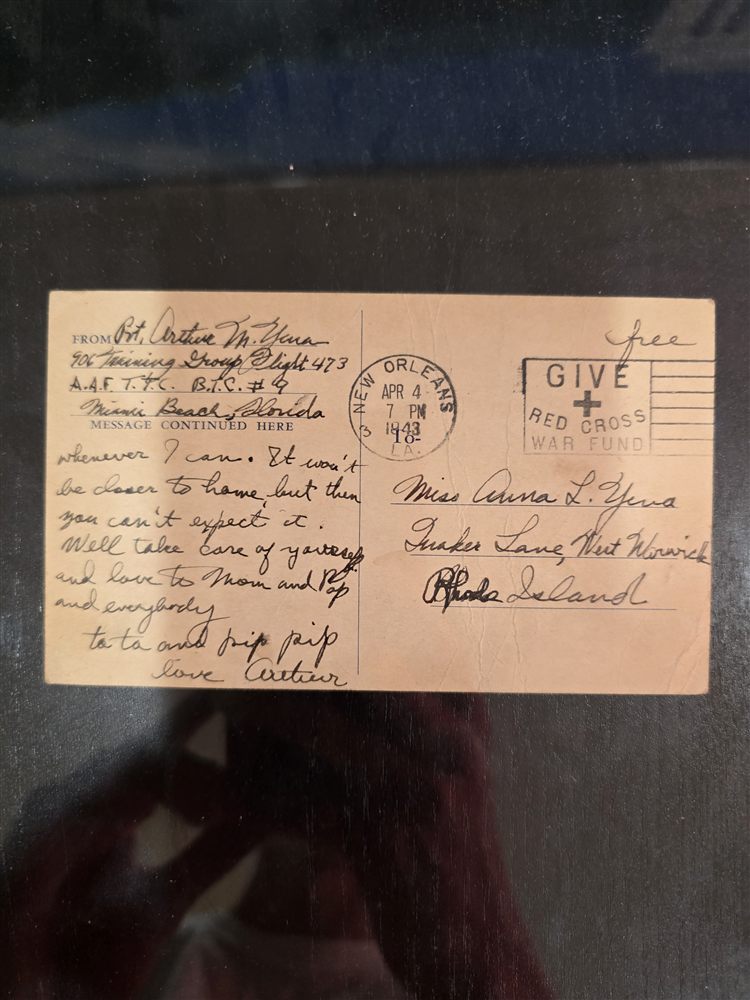 FROM Pvt. Arthur M. Yena
906 Training Group Flight 473
A.A.F. T.T.C. B.T.C. # 9
Miami Beach, Florida
MESSAGE CONTINUED HERE
whenever I can. It won't
be closer to home, but then
you can't expect it.
Well take care of yourself
and love to Mom and Pop
and everybody
ta ta and pip pip
love Arthur
NEW ORLEANS
APR 4
7 PM
1943
3 LA.
18-
free
GIVE
RED CROSS
WAR FUND
Miss Anna L. Yena
Quaker Lane, West Warwick
Rhode Island